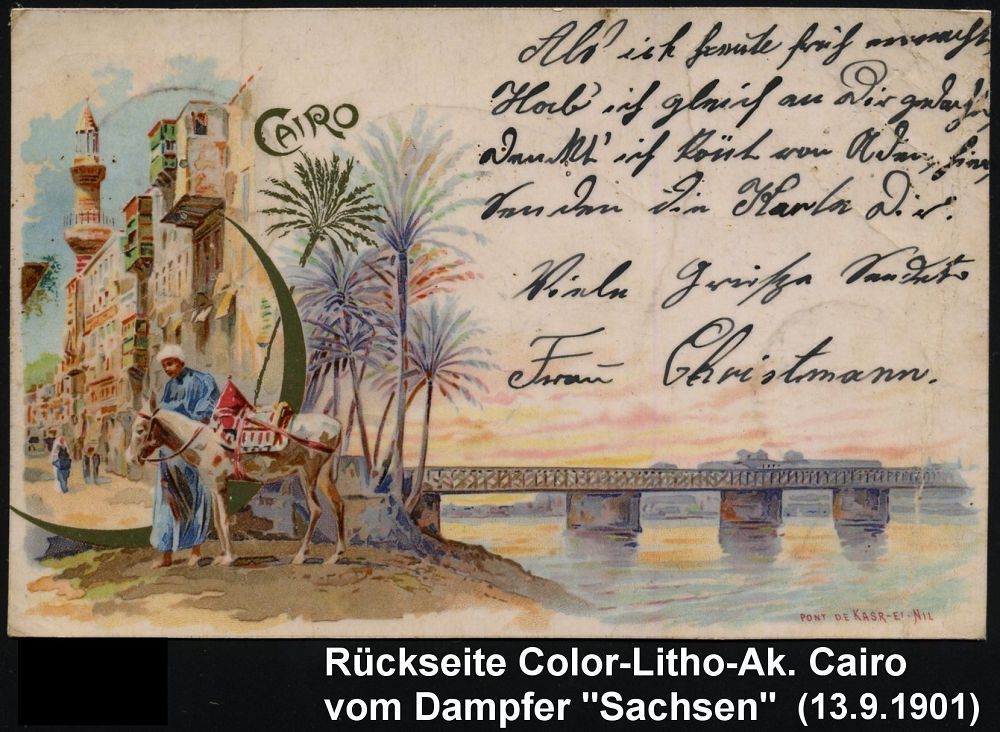 Als' ich heute früh erwacht,
Hab' ich gleich an Dir gedacht,
Denkt' ich könt von Aden, hier,
Senden die Karte Dir.
Viele Grüße Sendet
Frau Christmann.
CAIRO
PONT DE KASR-El-NIL
Rückseite Color-Litho-Ak. Cairo
vom Dampfer "Sachsen" (13.9.1901)